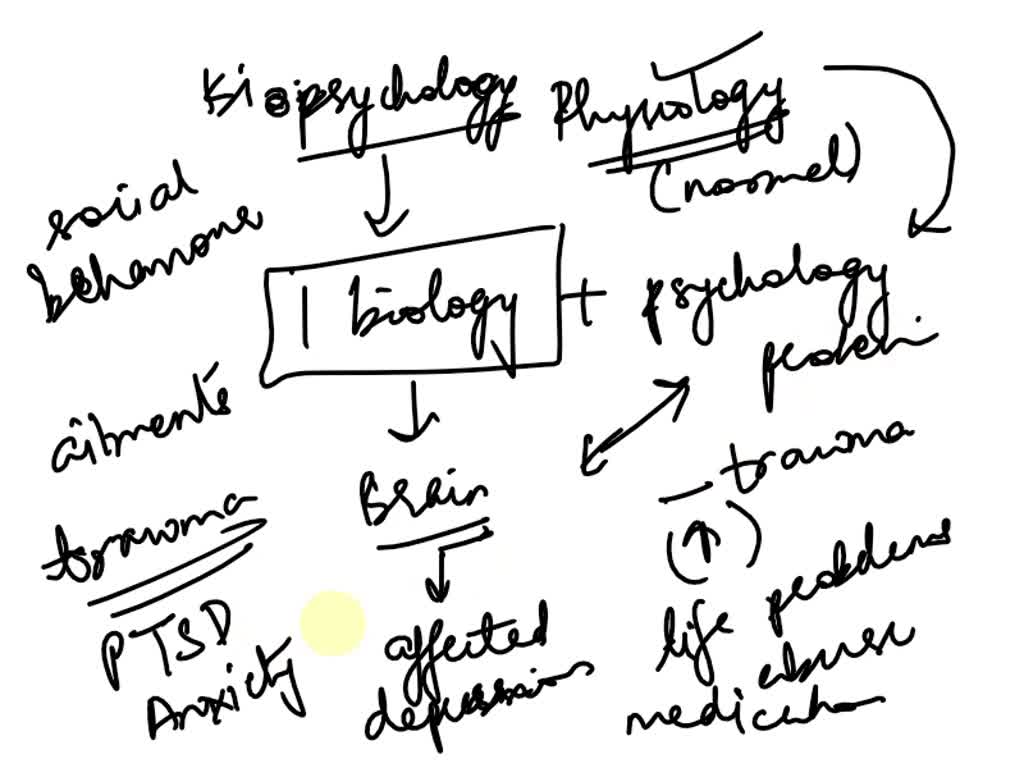 Biopsychology Physiology
(normal)
social
behaviours
| biology + psychology
protein
ailments
Brain
trauma
trauma
PTSD
Anxiety
affected
depression
life problems
abuse
medication